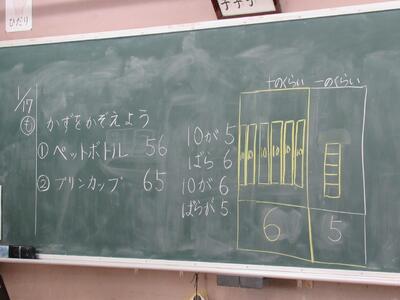 ひだり
1/17
㋲ かずをかぞえよう
① ペットボトル 56
② プリンカップ 65
10が5
ばら6
10が6
ばらが5
十のくらい 一のくらい
10 10 10 10 10 10
6 5